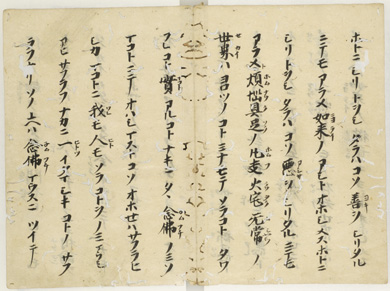 ホトニシリトヲシタラハコソ善ヲシリタル
ニテモアラメ如来ノアシトオホシメスホトニ
シリトヲシタラハコソ悪ヲシリタルニテモ
アラメ煩悩具足ノ凡夫火宅无常ノ
世界ハヨロツノコトミナモテソラコトタワ
フレコト實アルコトナキニタヽ念佛ノミソ
マコトニテオハシマストコソオホセハサフラヒ
シカマコトニ我モ人モソラコトヲノミマフシ
アヒサフラフナカニ一イタマシキコトノサフ
ラフナリソノユヘハ念佛マウスニツイテ